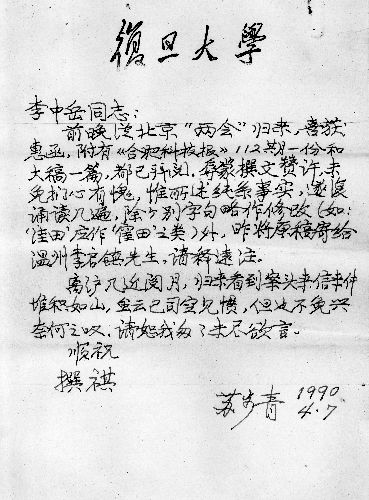 復旦大學
李中岳同志：
前晚從北京“两会”归来，喜获
惠函，附有《合肥科技报》112期一份和
大稿一篇，都已拜阅。辱蒙撰文赞许，未
免扪心有愧，惟所述纯系事实，遂复
诵读几遍，除个别字句略作修改（如：
“洼田”应作“窪田”之类）外，昨将原稿寄给
温州李启 先生，请释远注。
离沪几近阅月，归来看到案头来信来件
堆积如山，虽云已司空见惯，但也不免兴
奈何之叹。请恕我匆匆未尽欲言。
顺祝
撰祺
苏步青 1990
4.7